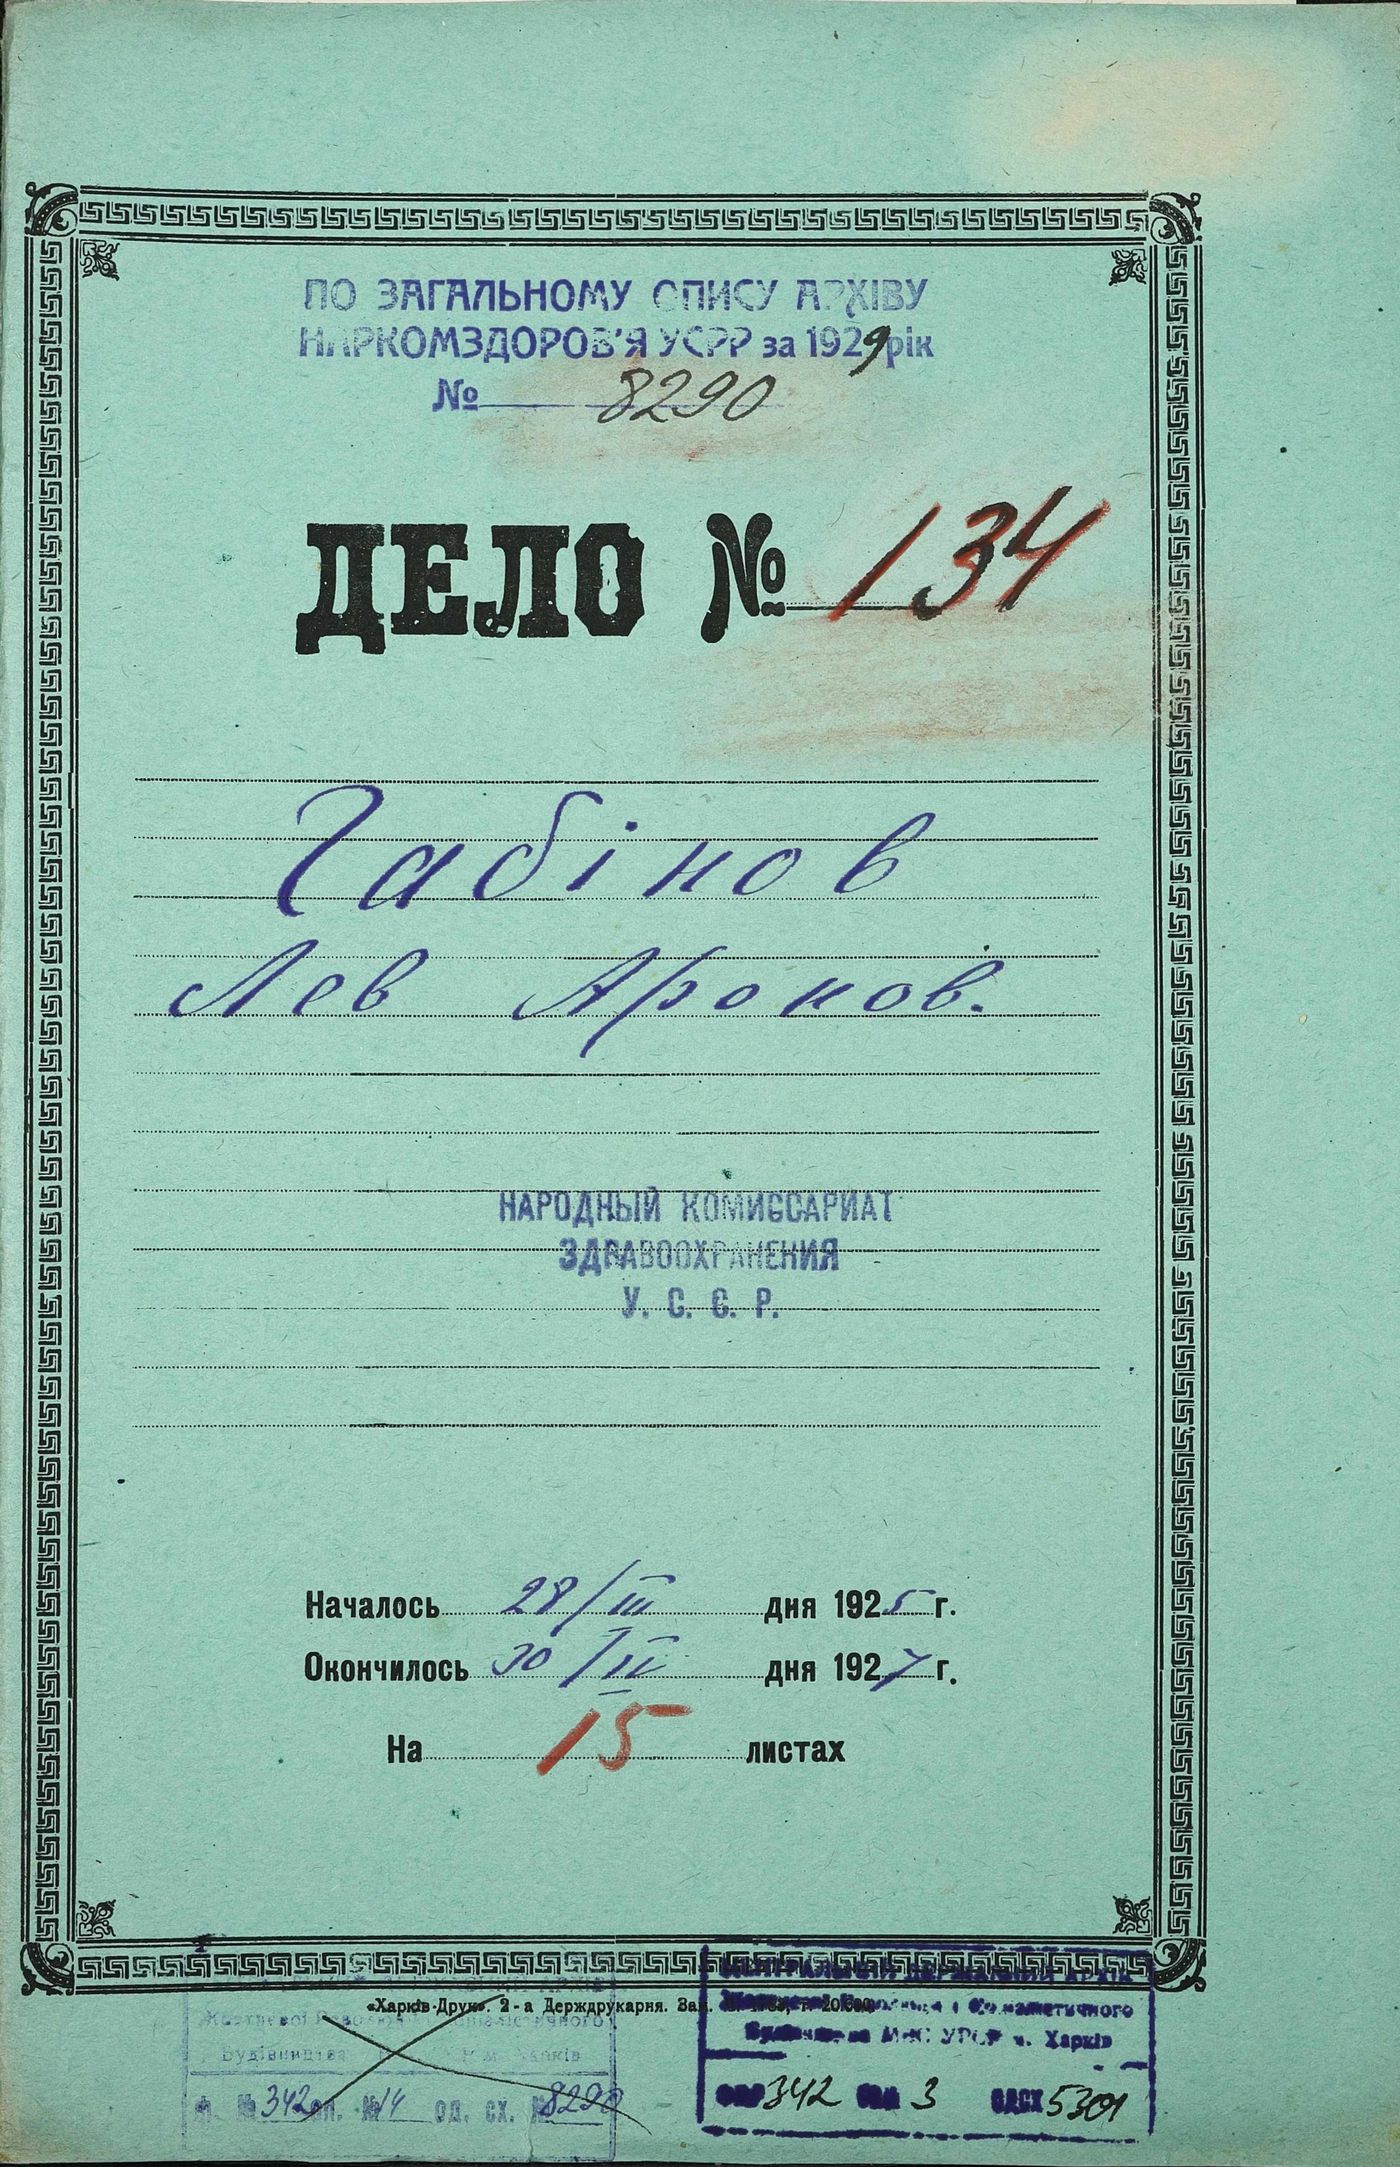 ПО ЗАГАЛЬНОМУ ОПИСУ АРХІВУ
НАРКОМЗДОРОВ'Я УСРР за 1929 рік
№ 8290
ДЕЛО № 134
Габінов
Лев Аронов.
НАРОДНЫЙ КОМИССАРИАТ
ЗДРАВООХРАНЕНИЯ
У. С. С. Р.
Началось 28/III дня 1925 г.
Окончилось 30/IV дня 1927 г.
На 15 листах
«Харків-Друк». 2-а Держдрукарня. Зам. т. 20.000
ЦЕНТРАЛЬНИЙ ДЕРЖАВНИЙ АРХІВ
Жовтневої Революції і Соціалістичного
Будівництва МВС УРСР м. Харків
ФОР 342 ОП 3 ОДСХ 5301
Жовтневої Революції Соціалістичного
Будівництва м. Харків
ф. № 342 оп. №14 од. сх. № 8290